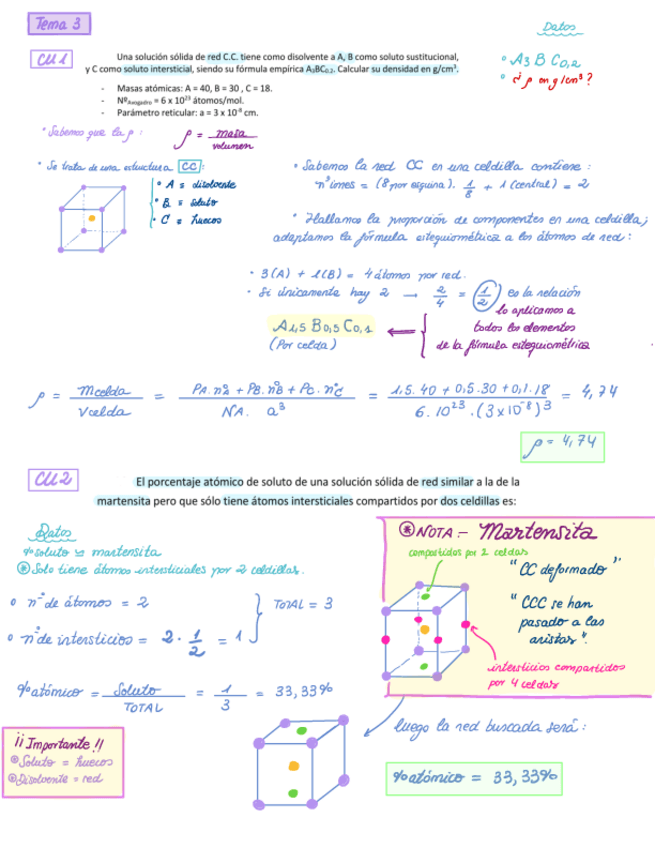 Tema 3
Datos
CU1
Una solución sólida de red C.C. tiene como disolvente a A, B como soluto sustitucional,
y C como soluto intersticial, siendo su fórmula empírica A₃BC₀.₂. Calcular su densidad en g/cm³.
° A3 B C0,2
° ¿ρ en g/cm³?
- Masas atómicas: A = 40, B = 30 , C = 18.
- NºAvogadro = 6 x 10²³ átomos/mol.
- Parámetro reticular: a = 3 x 10⁻⁸ cm.
° Sabemos que la ρ :
ρ = masa / volumen
° Se trata de una estructura CC :
° A ≡ disolvente
° B ≡ soluto
° C ≡ huecos
° Sabemos la red CC en una celdilla contiene :
nºiones = (8 por esquina). 1/8 + 1 (central) = 2
° Hallamos la proporción de componentes en una celdilla;
adaptamos la fórmula estequiométrica a los átomos de red :
° 3(A) + 1(B) = 4 átomos por red.
° Si únicamente hay 2 → 2/4 = (1/2) es la relación
lo aplicamos a
todos los elementos
de la fórmula estequiométrica
A1,5 B0,5 C0,1
(Por celda)
ρ = mcelda / Vcelda = PA.nºA + PB.nºB + PC.nºC / NA. a³ = 1,5.40 + 0,5.30 + 0,1.18 / 6.10²³.(3x10⁻⁸)³ = 4,74
ρ = 4,74
CU2
El porcentaje atómico de soluto de una solución sólida de red similar a la de la
martensita pero que sólo tiene átomos intersticiales compartidos por dos celdillas es:
Datos
% soluto martensita
Solo tiene átomos intersticiales por 2 celdillas.
* NOTA :- Martensita
compartidos por 2 celdas
"CC deformado"
"CCC se han
pasado a las
aristas".
intersticios compartidos
por 4 celdas
° nº de átomos = 2
° nº de intersticios = 2 · 1/2 = 1
TOTAL = 3
% atómico = Soluto / TOTAL = 1/3 = 33,33%
¡¡Importante!!
Soluto = huecos
Disolvente = red
luego la red buscada será :
% atómico = 33,33%